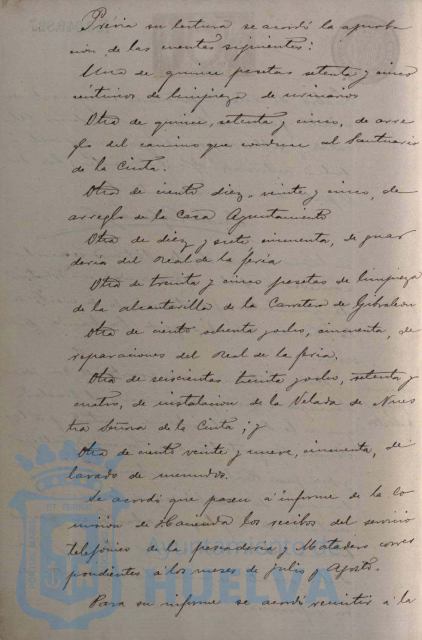 Prévia su lectura se acordó la aproba
cion de las cuentas siguientes:
Una de quince pesetas setenta y cinco
céntimos de limpieza de urinarios
Otra de quince, setenta y cinco, de arre
glo del camino que conduce al Santuario
de la Cinta.
Otra de ciento diez, veinte y cinco, de
arreglo de la Casa Ayuntamiento
Otra de diez y siete, cincuenta, de guar
deria del Real de la feria
Otra de treinta y cinco pesetas de limpieza
de la alcantarilla de la Carretera de Gibraleon
Otra de ciento ochenta y ocho, cincuenta, de
reparaciones del Real de la feria,
Otra de seiscientas treinta y ocho, setenta y
cuatro, de instalacion de la Velada de Nues
tra Señora de la Cinta; y
Otra de ciento veinte y nueve, cincuenta, de
lavado de menudos.
Se acordó que pasen á informe de la Co
mision de Hacienda los recibos del servicio
telefónico de la pescaderia y Matadero corres
pondientes á los meses de Julio y Agosto.
Para su informe se acordó remitir á la
Ayuntamiento
HUELVA